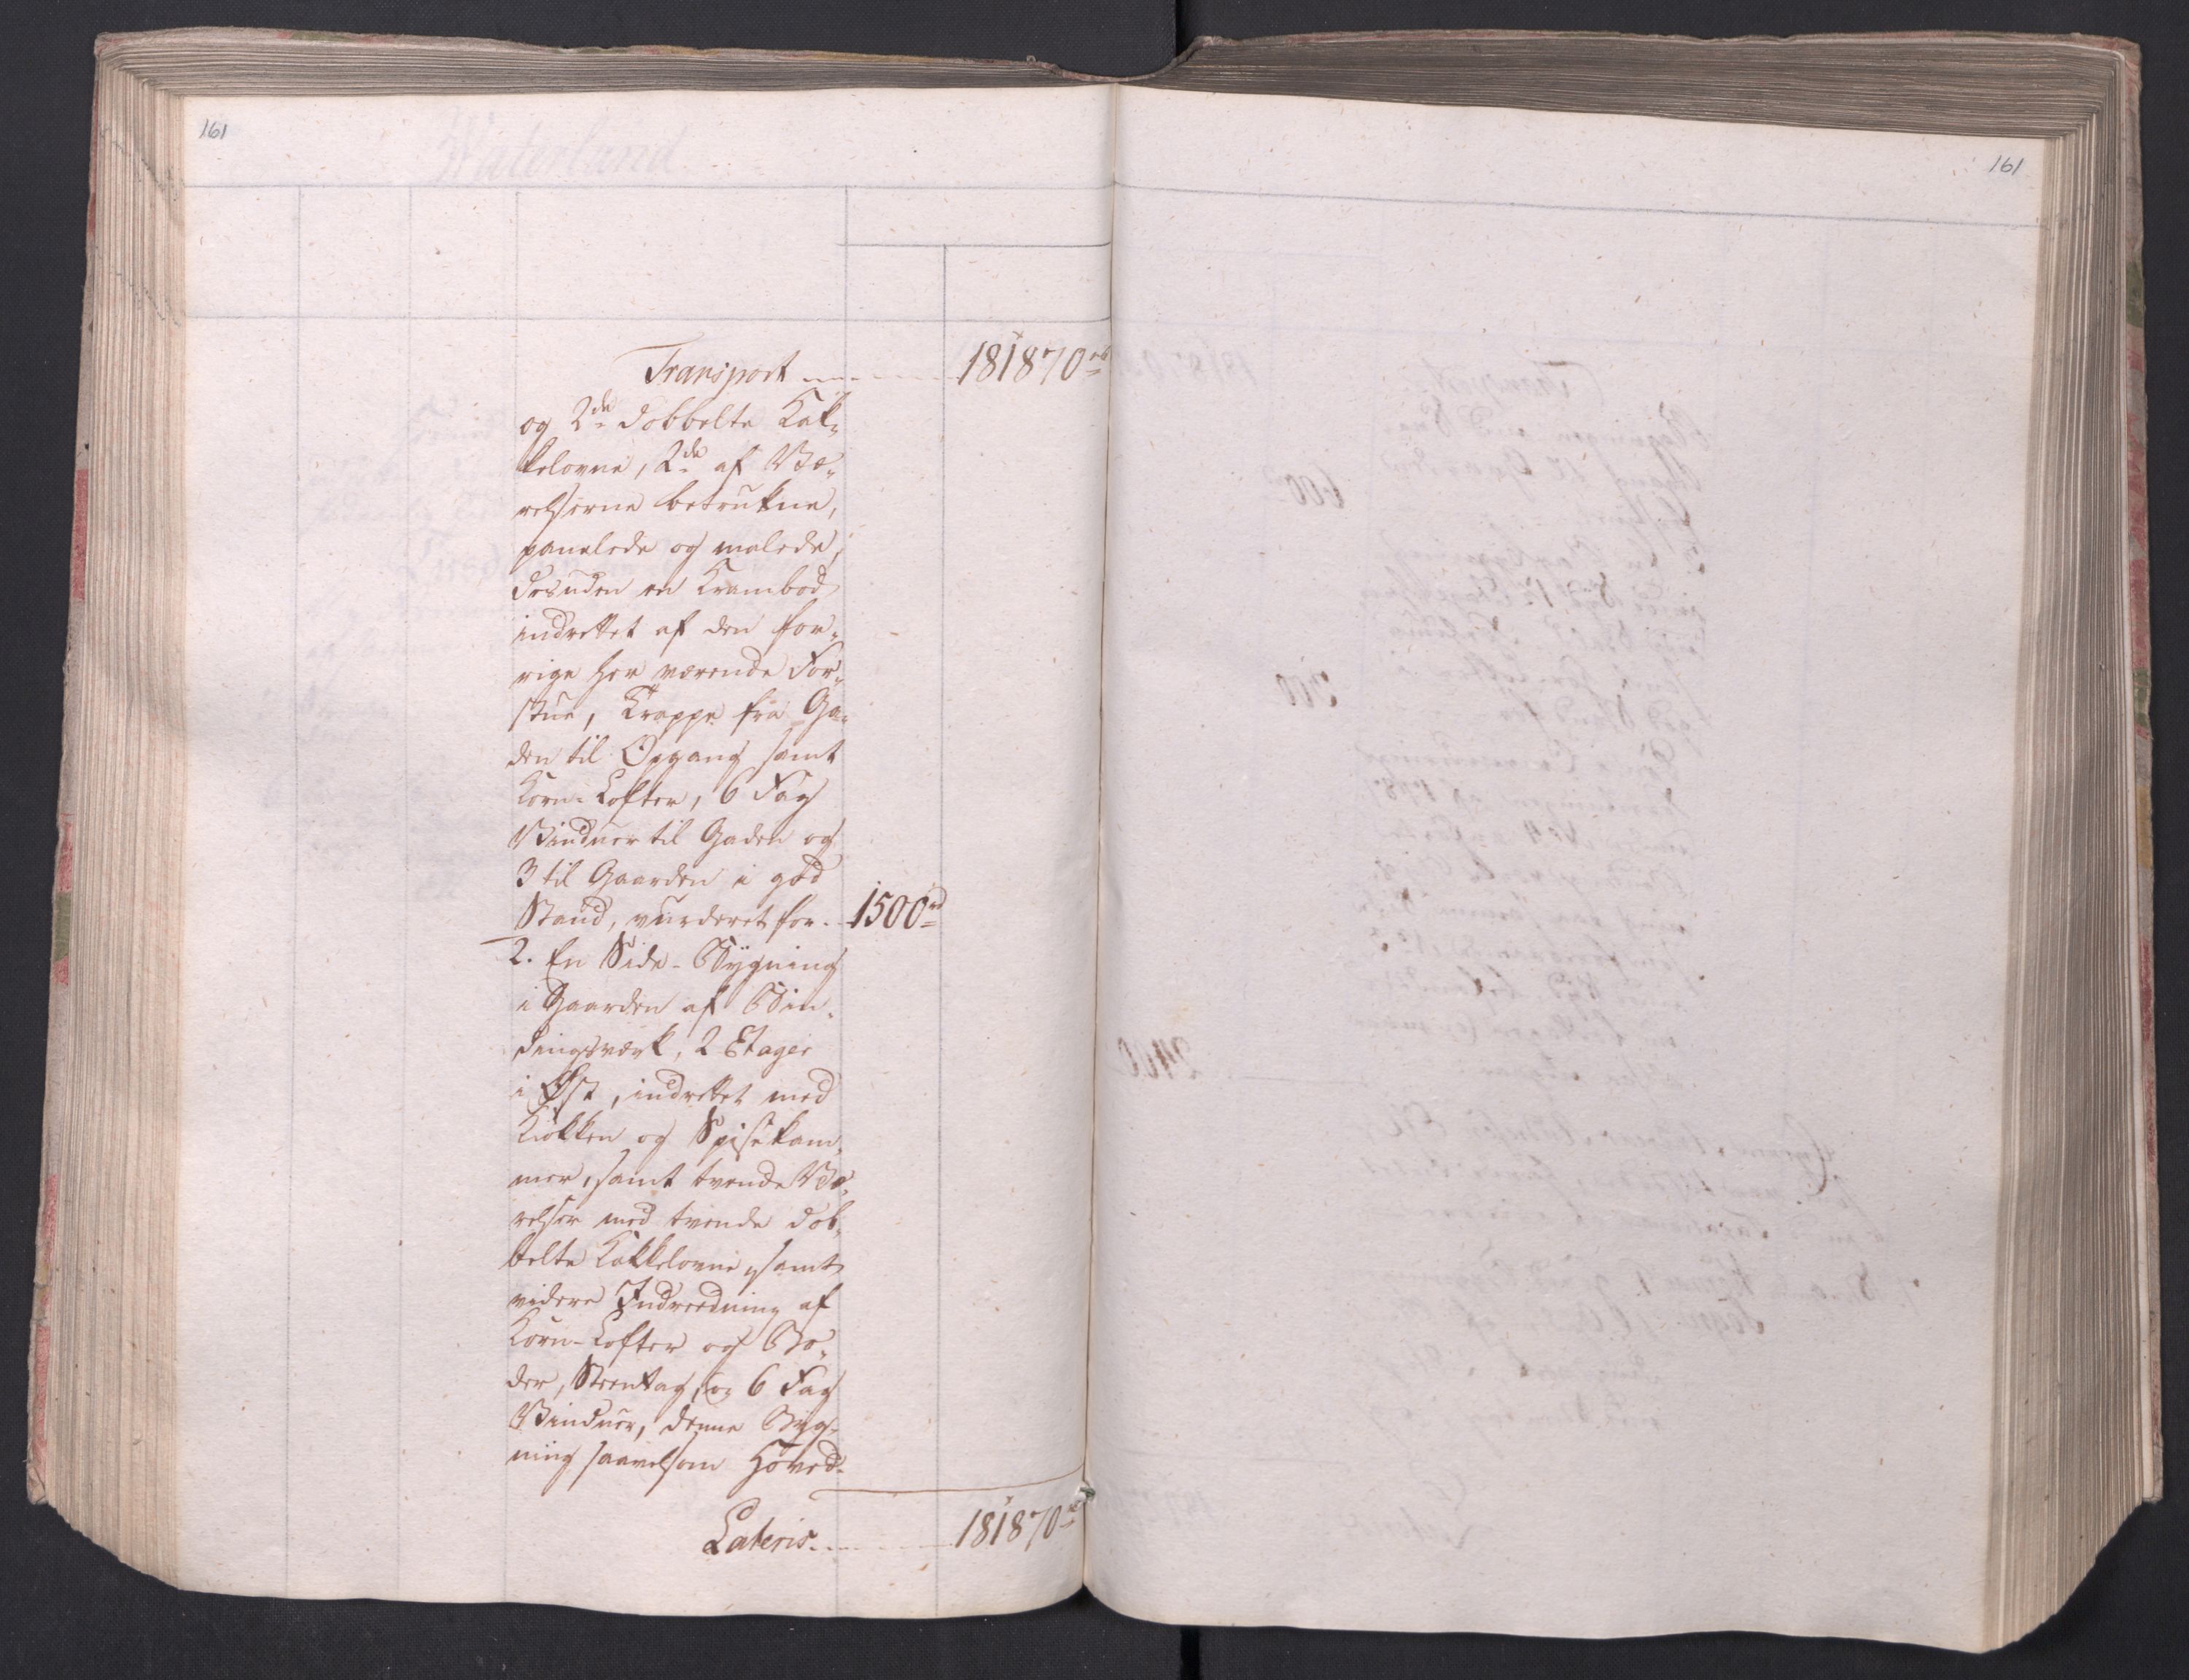 161
161
Transport 181870 rd
og 2de dobbelte Kak-
kelovne, 2de af Væ-
relserne betrukne,
panelede og malede,
desuden en Krambod
indrettet af den for-
rige her værende For-
stue, Trappe fra Ga-
den til Opgang samt
Korn-Lofter, 6 Fag
Vinduer til Gaden og
3 til Gaarden i god
Stand, vurderet for 1500 rd
2. En Side-Bygning
i Gaarden af Bin-
dingsværk, 2 Etager
i Øst, indrettet med
Kiøkken og Spisekam-
mer, samt tvende Væ-
relser med tvende dob-
belte Kakkelovne, samt
videre Indreedning af
Korn-Lofter og Bo-
der, Steentag, og 6 Fag
Vinduer, denne Byg-
ning saavelsom Hoved-
Lateris 181870 rd